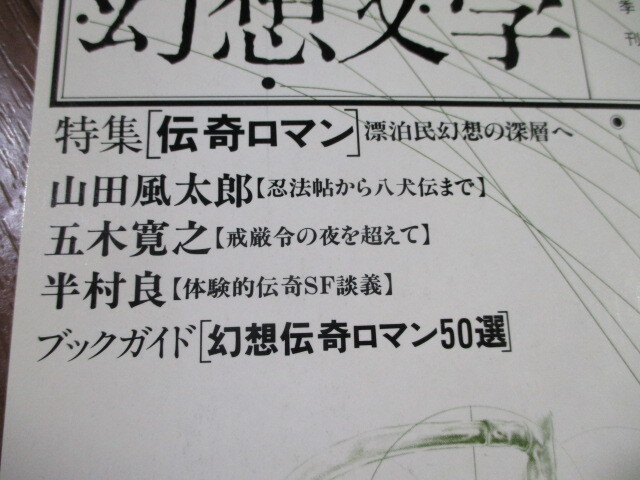 幻想文学
季刊
特集[伝奇ロマン]漂泊民幻想の深層へ
山田風太郎【忍法帖から八犬伝まで】
五木寛之【戒厳令の夜を超えて】
半村良【体験的伝奇SF談義】
ブックガイド[幻想伝奇ロマン50選]